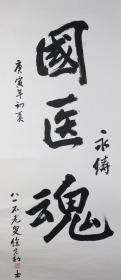 國医魂
永铸
庚寅年初夏
八一不老叟